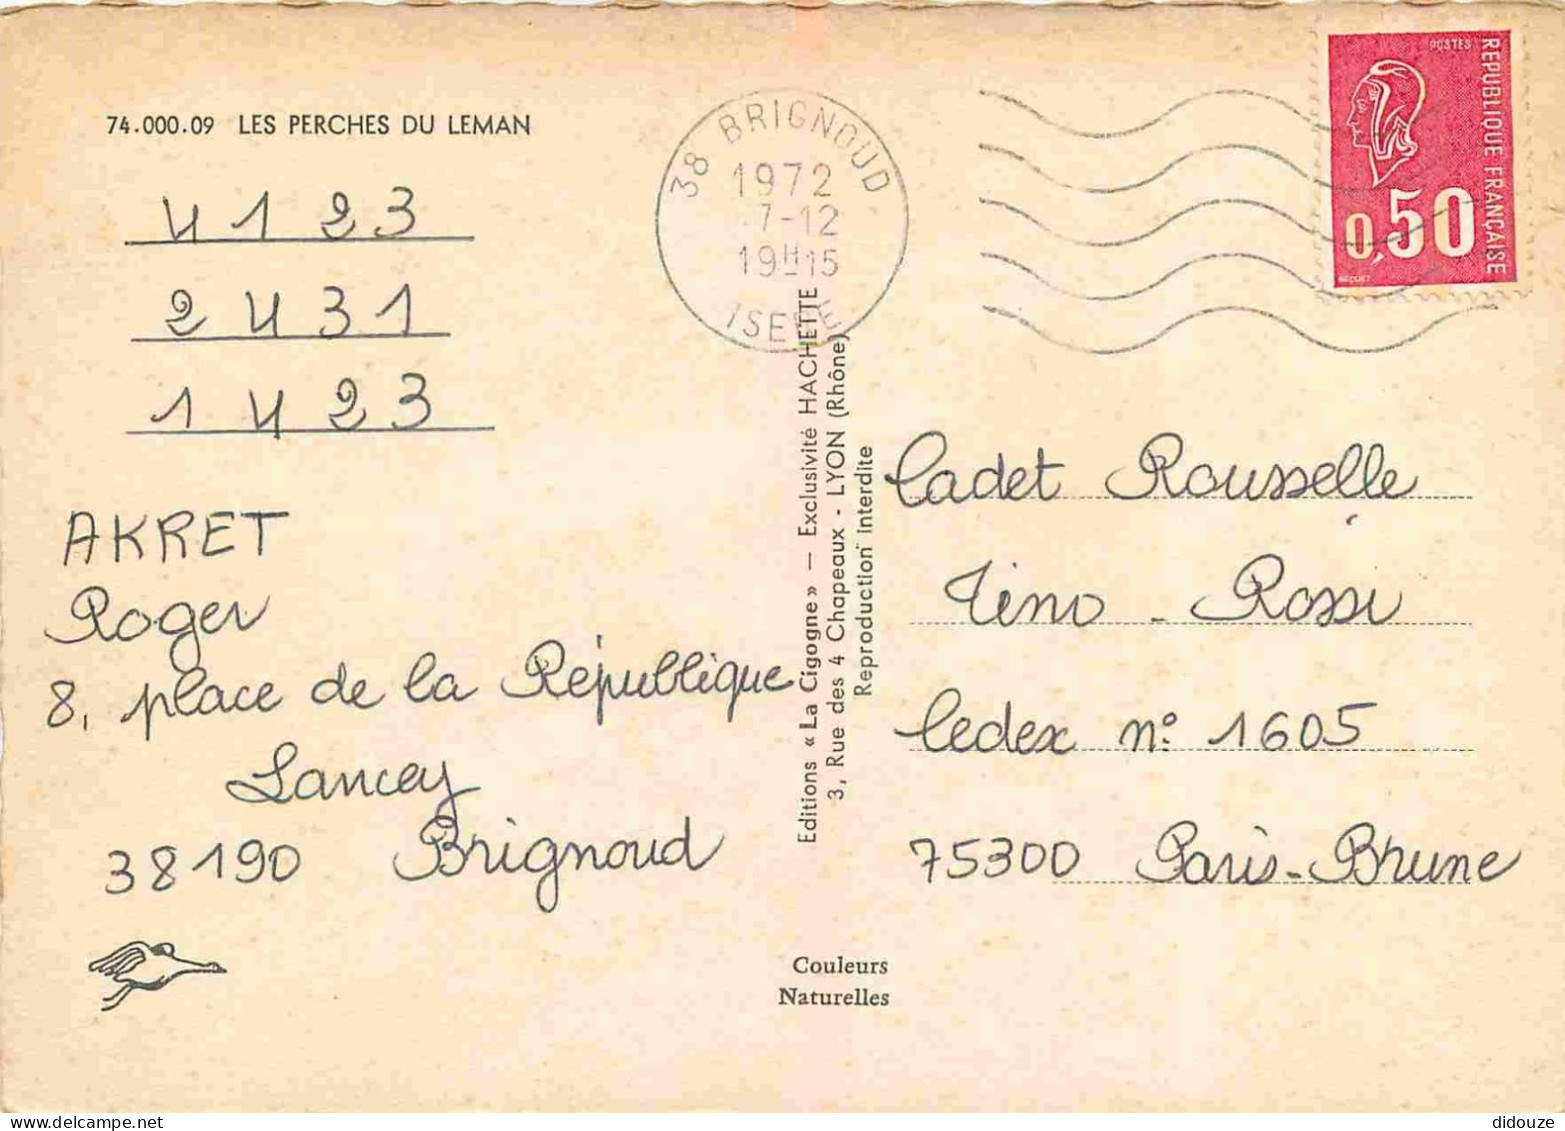 74.000.09 LES PERCHES DU LEMAN
4 1 2 3
2 4 3 1
1 4 2 3
AKRET
Roger
8, place de la République
Lancey
38190 Brignoud
38 BRIGNOUD
1972
7-12
19H15
ISERE
POSTES
REPUBLIQUE FRANÇAISE
0,50
BEQUET
Editions « La Cigogne » — Exclusivité HACHETTE
3, Rue des 4 Chapeaux - LYON (Rhône)
Reproduction Interdite
Cadet Rousselle
Tino - Rossi
Cedex n° 1605
75300 Paris-Brune
Couleurs
Naturelles
didouze